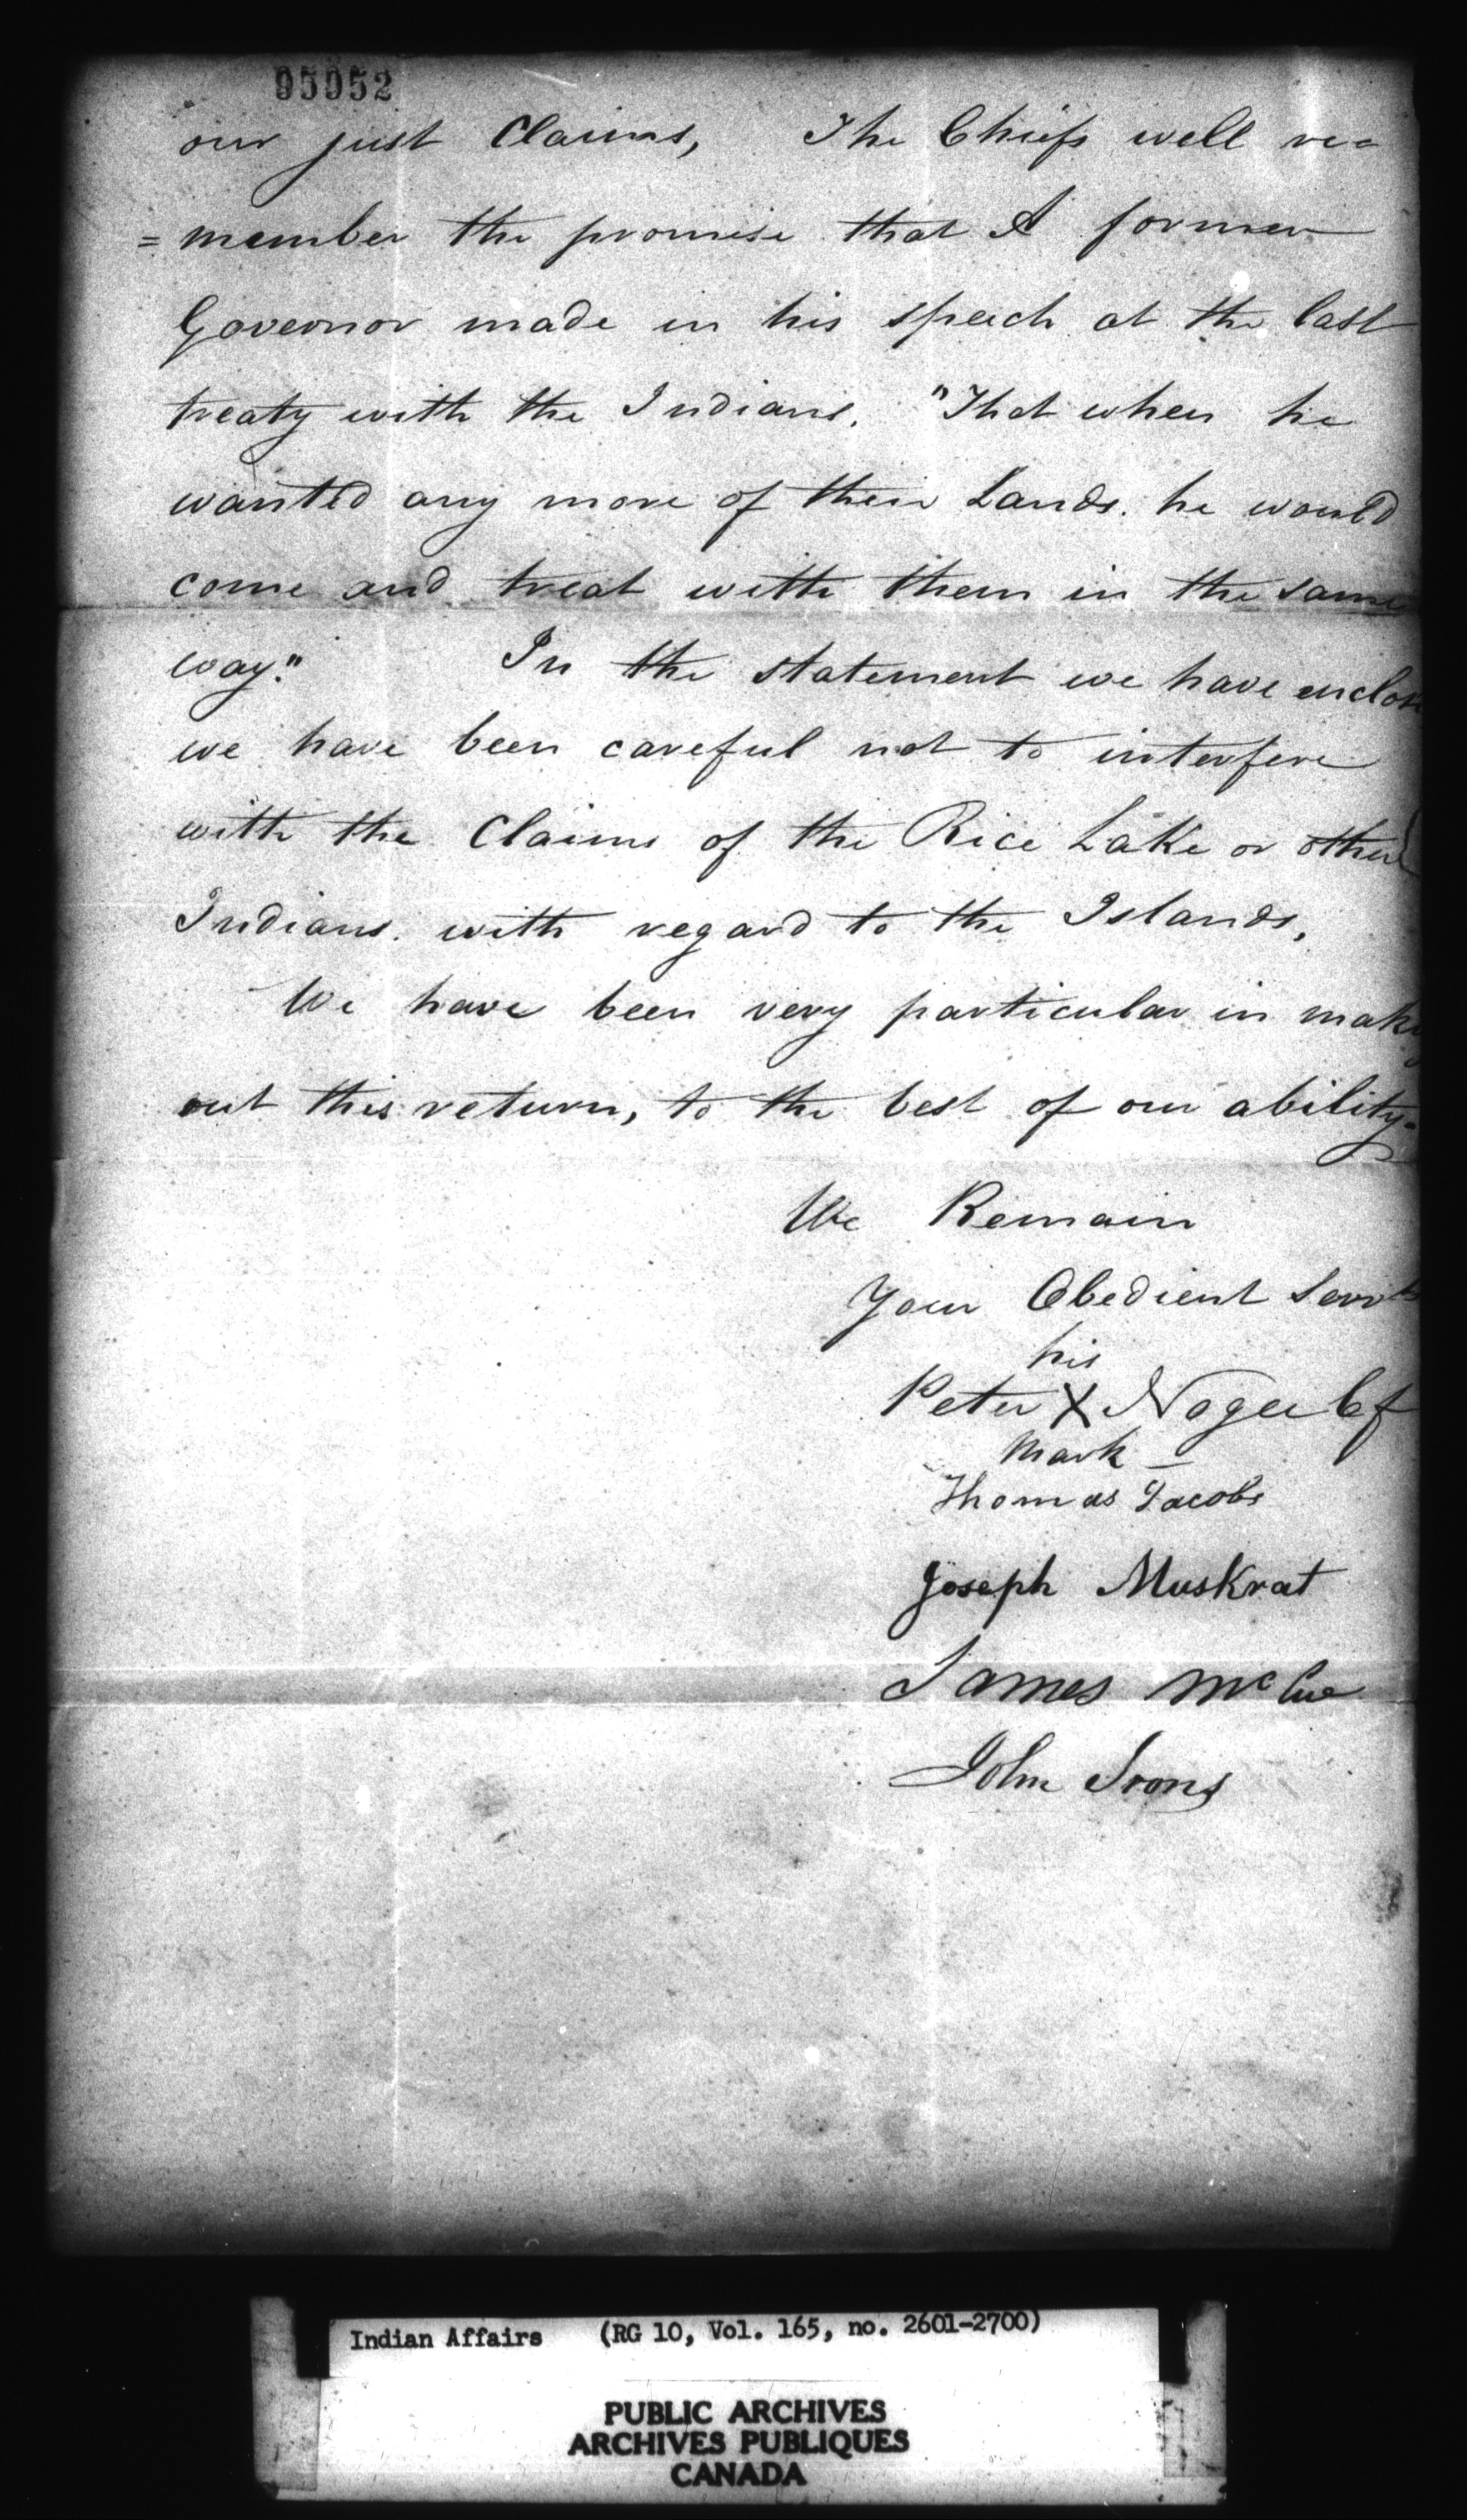 95952
our just Claims, The Chiefs well re=
=member the promise that A former
Governor made in his speech at the last
treaty with the Indians. "That when he
wanted any more of their Lands. he would
come and treat with them in the same
way." In the statement we have enclos
we have been careful not to interfere
with the Claims of the Rice Lake or other
Indians. with regard to the Islands,
We have been very particular in mak
out this return, to the best of our ability.
We Remain
Your Obedient Servts
his
Peter X Nogee Cf
Mark
Thomas Jacobs
Joseph Muskrat
James McCue
John Irons
Indian Affairs (RG 10, Vol. 165, no. 2601-2700)
PUBLIC ARCHIVES
ARCHIVES PUBLIQUES
CANADA